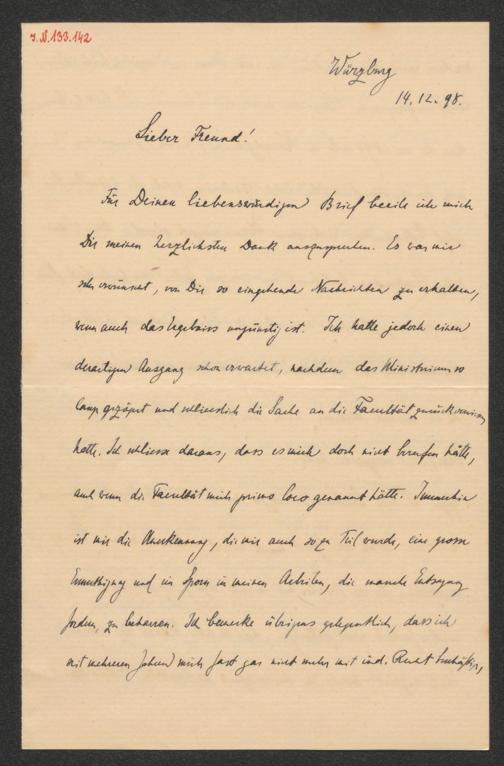 J.N.133.142
Würzburg
14.12.98.
Lieber Freund!
Für Deinen liebenswürdigen Brief beeile ich mich
Dir meinen herzlichsten Dank auszusprechen. Es war mir
sehr erwünscht, von Dir so eingehende Nachrichten zu erhalten,
wenn auch das Ergebniss ungünstig ist. Ich hatte jedoch einen
derartigen Ausgang schon erwartet, nachdem das Ministerium so
lange gezögert und schliesslich die Sache an die Facultät zurückverwiesen
hatte. Ich schliesse daraus, dass es mich doch nicht berufen hätte,
auch wenn die Facultät mich primo loco genannt hätte. Immerhin
ist mir die Anerkennung, die mir auch so zu Teil wurde, eine grosse
Ermuthigung und ein Sporn in meinen Arbeiten, die manche Entsagung
fordern, zu beharren. Ich bemerke übrigens gelegentlich, dass ich
seit mehreren Jahren mich fast gar nicht mehr mit ind. Recht beschäftige,